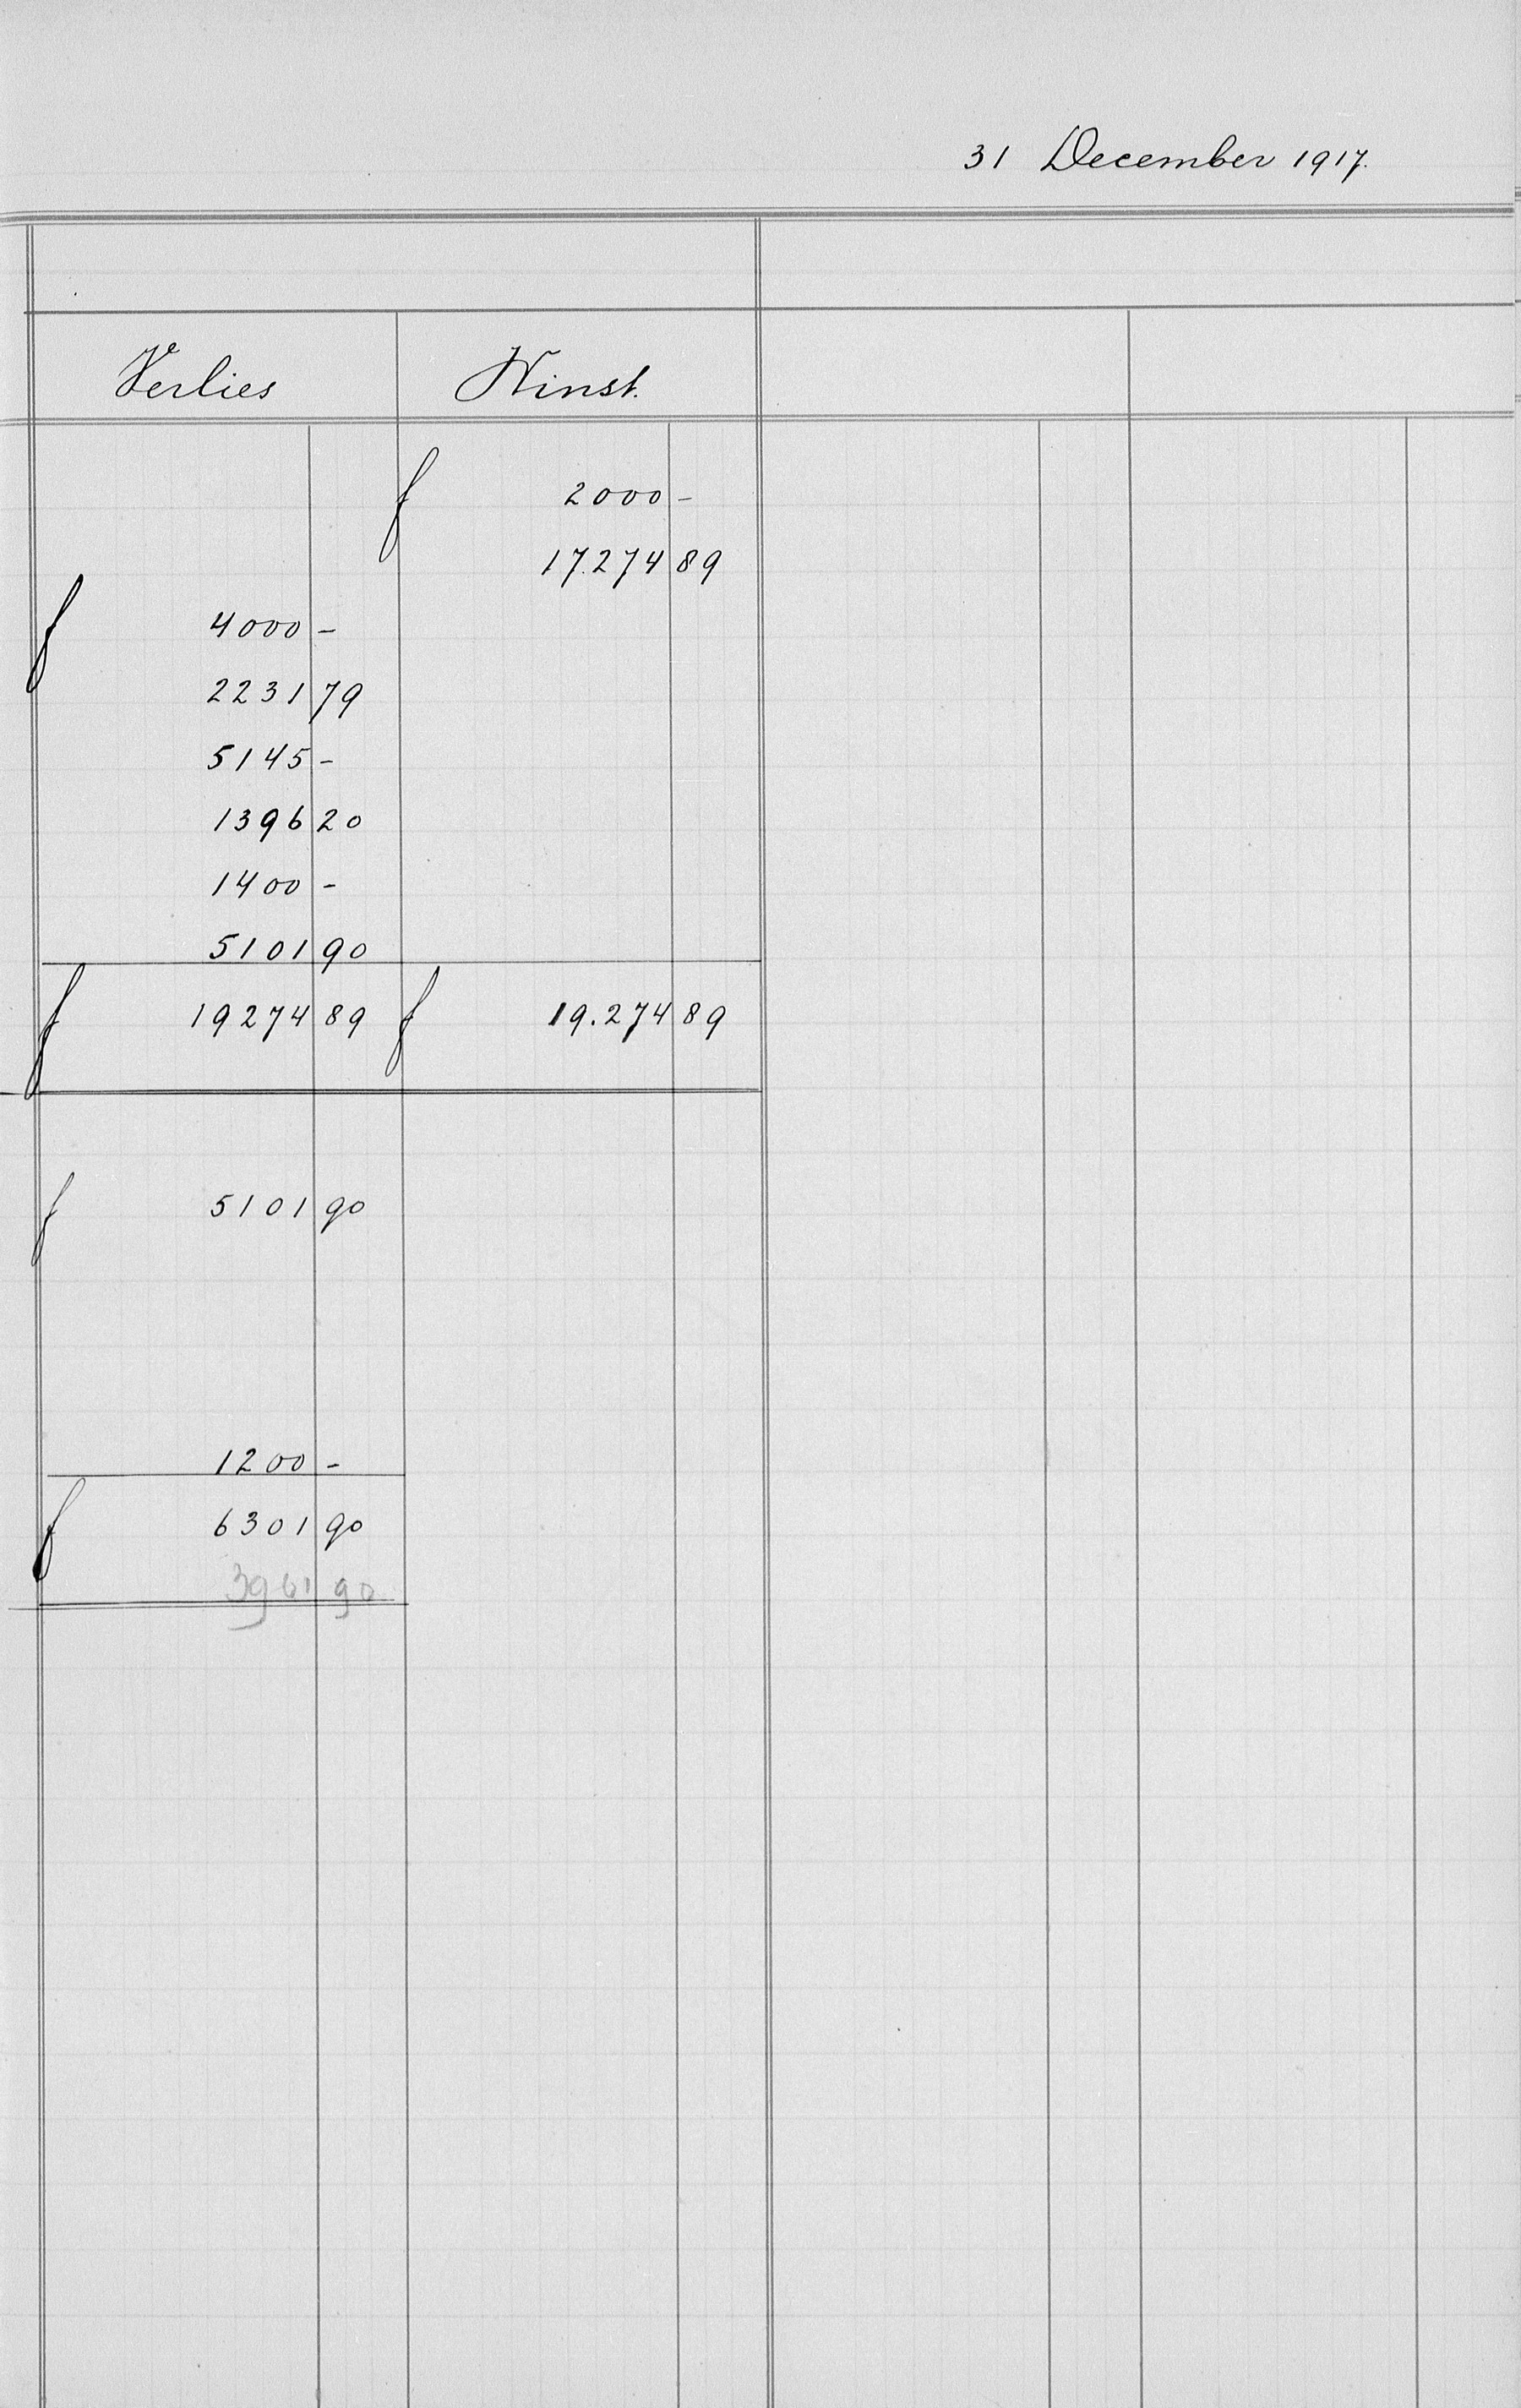 31 December 1917.
Verlies Winst.
f 2000 -
17.274 89
f 4000 -
2231 79
5145 -
1396 20
1400 -
5101 90
f 19274 89 f 19.274 89
f 5101 90
1200 -
f 6301 90
3961 90